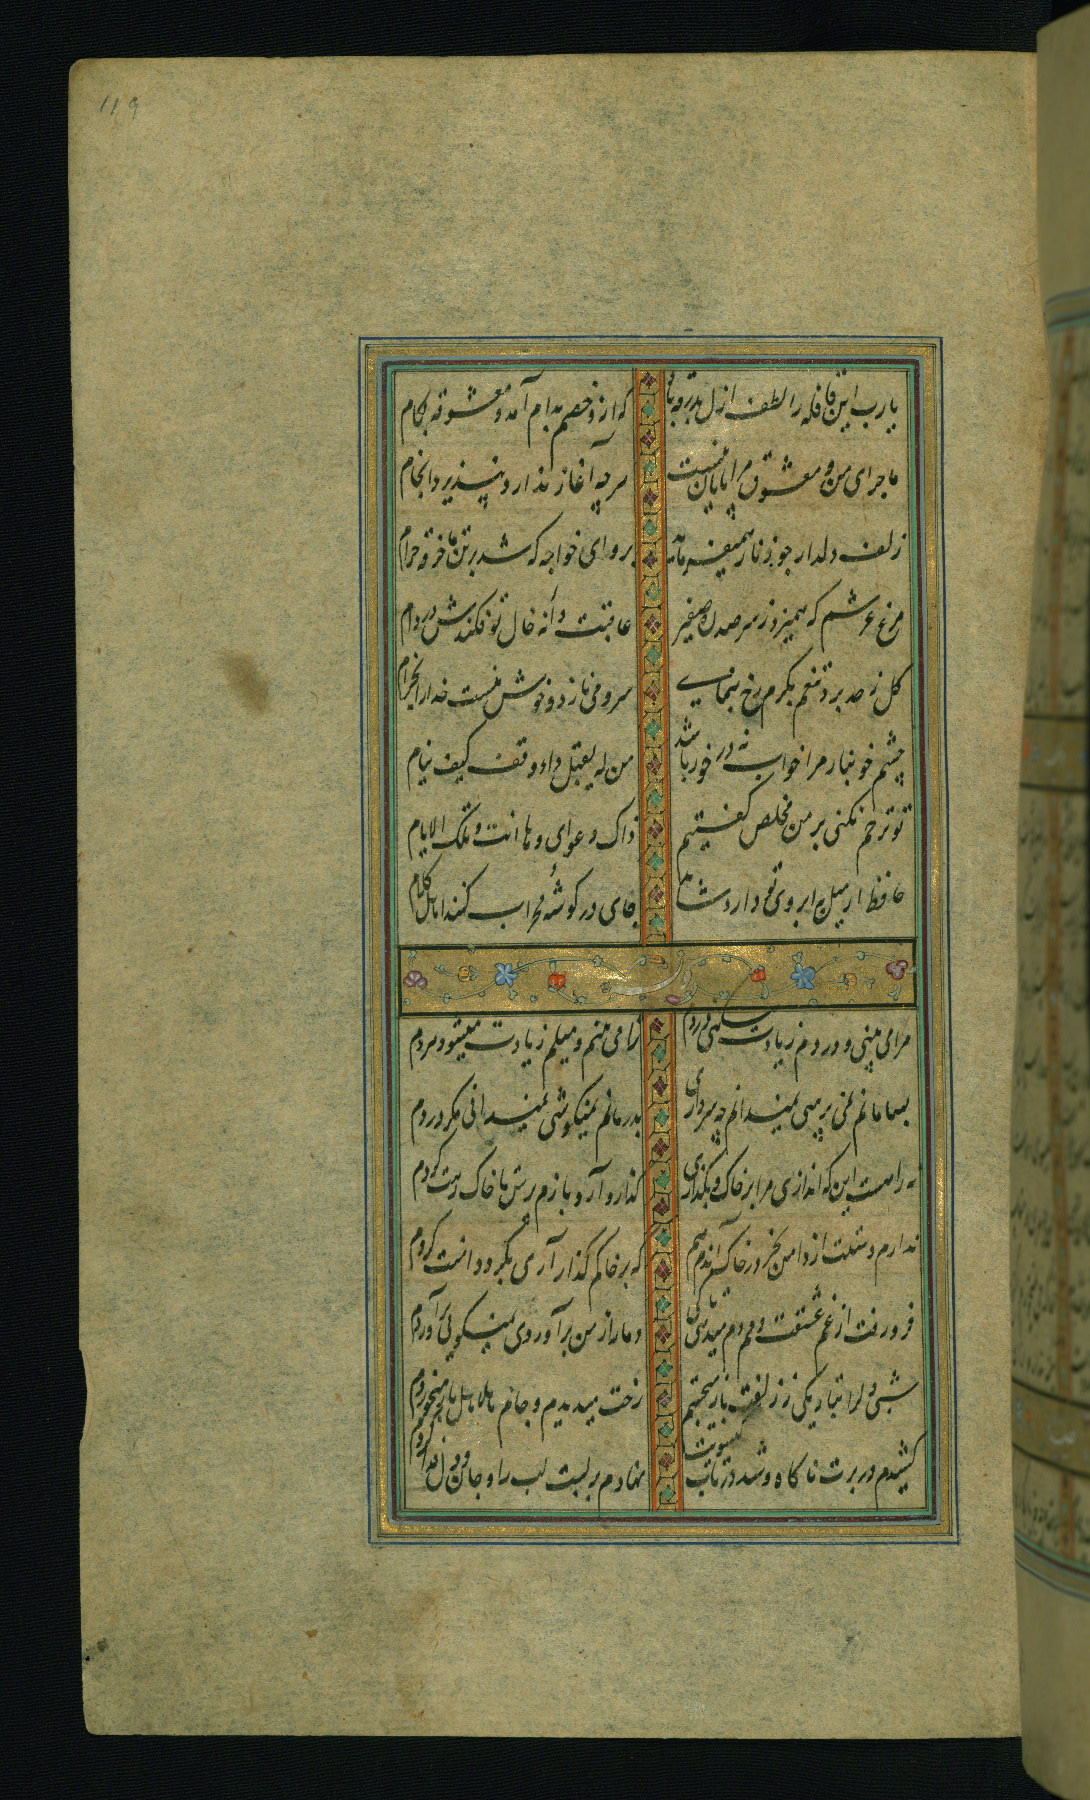 119
یارب این قافله را لطف ازل بدرقه باد که ازو خصم بدام آمد و معشوقه بکام
ماجرای من و معشوق مرا پایان نیست هرچه آغاز ندارد نپذیرد انجام
زلف دلدار چو زنار همیفرماید برو ای خواجه که شد بر تن ما خرقه حرام
مرغ عرشم که همیزد ز سر صدره صفیر عاقبت دانه خال تو فکندش در دام
کل ز حد برد تنعم بکرم رخ بنمای سرو می نازد و خوش نیست خدارا بخرام
چشم خونبار مرا خواب نه درخور باشد من له یقتل داء دنف کیف ینام
تو ترحم نکنی بر من مخلص گفتم ذاک دعوای و ها انت و تلک الایام
حافظ ار میل به ابروی تو دارد شاید جای در کوشهٔ محراب کنند اهل کلام
مرا می بینی و دردم زیادت میکنی دردم ترا می بینم و میلم زیادت میشود هردم
بسامانم نمی پرسی نمیدانم چه سر داری بدرمانم نمیکوشی نمیدانی مکر دردم
نه راهست این که اندازی مرا بر خاک و بکذاری کذار و آر و بازم پرس تا خاک رهت کردم
ندارم دستت از دامن بجز در خاک و اندم هم که بر خاکم کذار آری بگیرد دامنت کردم
فرو رفت از غم عشقت دمم دم میدهی تا کی دمار از من برآوردی نمیکویی برآوردم
شبی دلرا بتاریکی ز زلفت باز میجستم رخت میدیدم و جام هلالی باز میخوردم
کشیدم در برت ناکاه و شد در تاب کیسویت نهادم بر لبت لب را و جان و دل فدا کردم